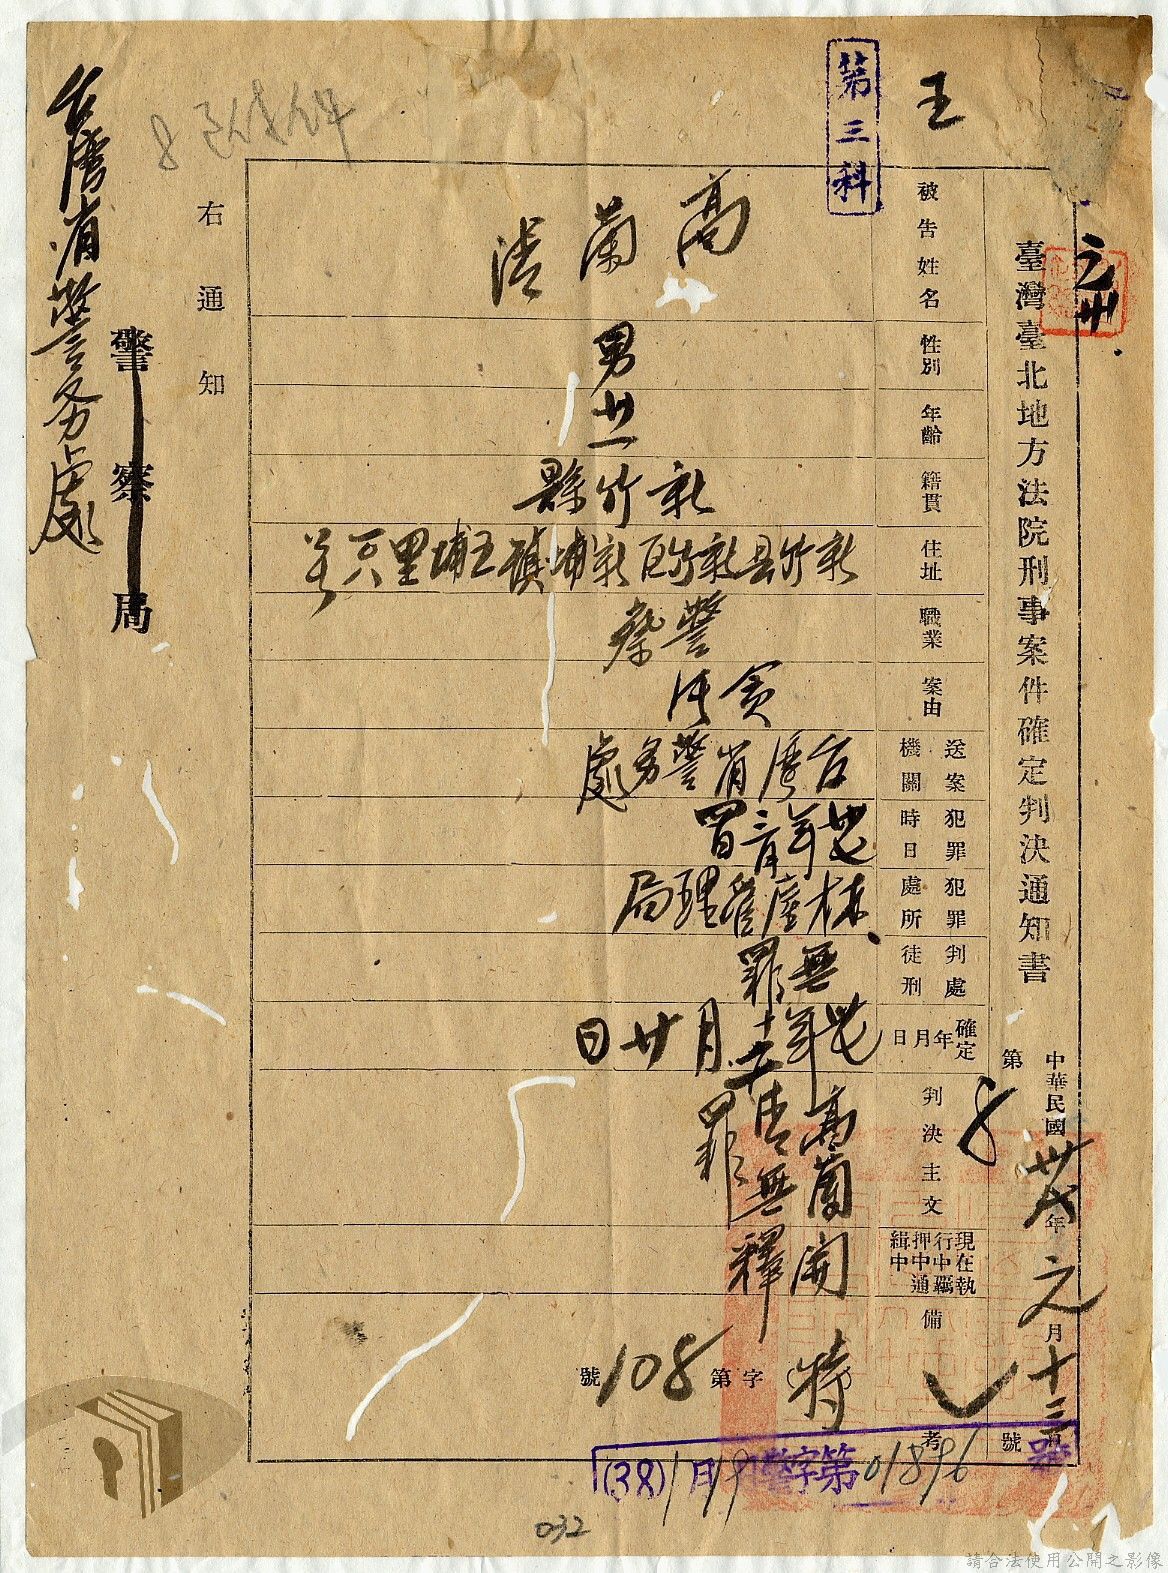 王
第三科
臺灣臺北地方法院刑事案件確定判決通知書
第 8 號
中華民國卅八年元月十三日
被告姓名 高蘭清
性別 男
年齡 廿一
籍貫 新竹縣
住址 新竹县新竹区新埔鎮五埔里
職業 警察
案由 貪污
送案機關 台灣省警务處
犯罪時日 卅七年三月四日
犯罪處所 林產管理局
判處徒刑 無罪
確定年月日 卅七年十二月廿日
判決主文 高蘭清無罪
現在執行中羈押中通緝中 開釋
備考 特字第108號
右通知
台灣省警务處
警察局
(38)1月19 警字第01896號
032
請合法使用公開之影像